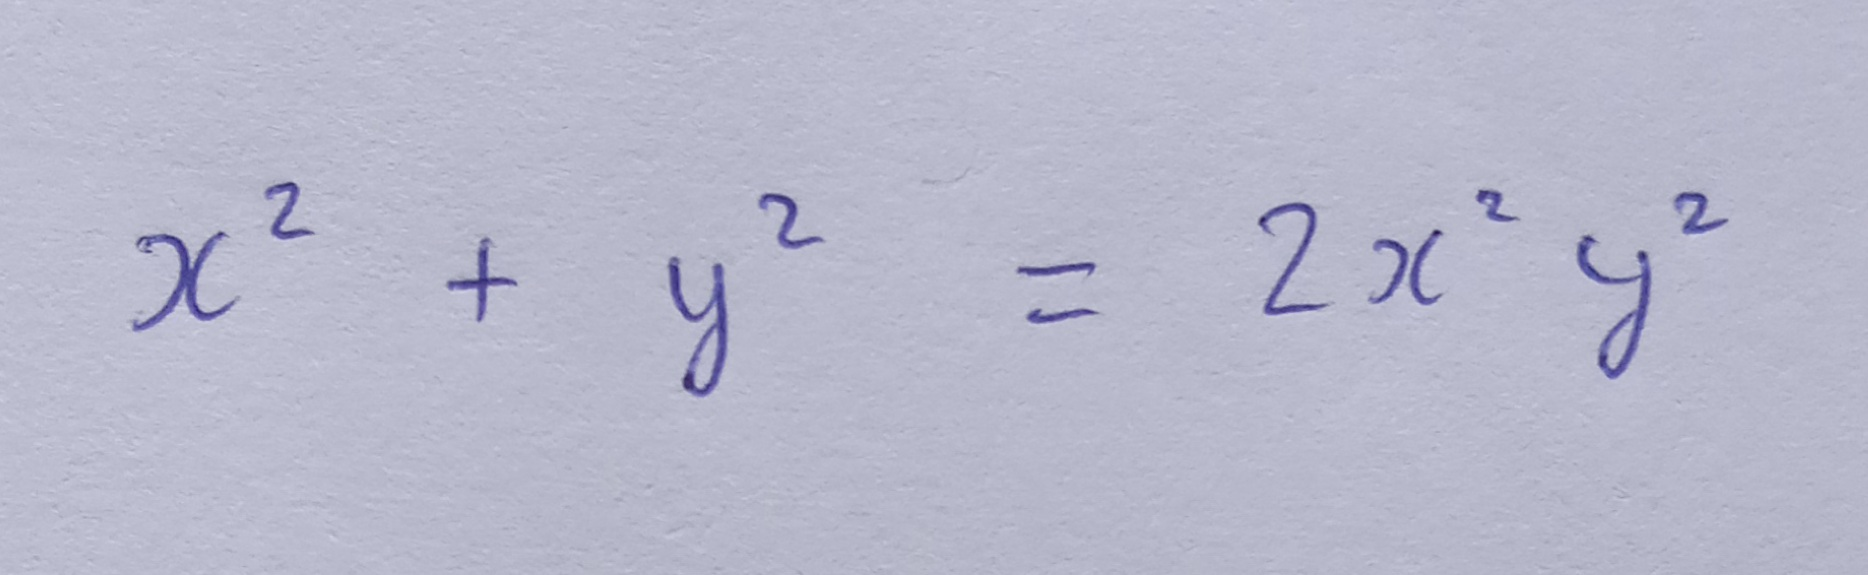 x² + y² = 2x²y²